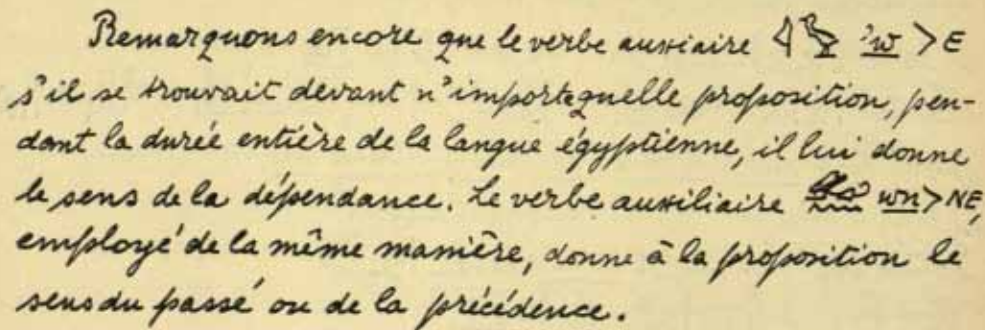 Remarquons encore que le verbe auxiaire 𓇋𓅱 ꞽw > E
s'il se trouvait devant n'importe quelle proposition, pen-
dant la durée entière de la langue égyptienne, il lui donne
le sens de la dépendance. Le verbe auxiliaire 𓃹𓈖 wn > NE,
employé de la même manière, donne à la proposition le
sens du passé ou de la précédence.